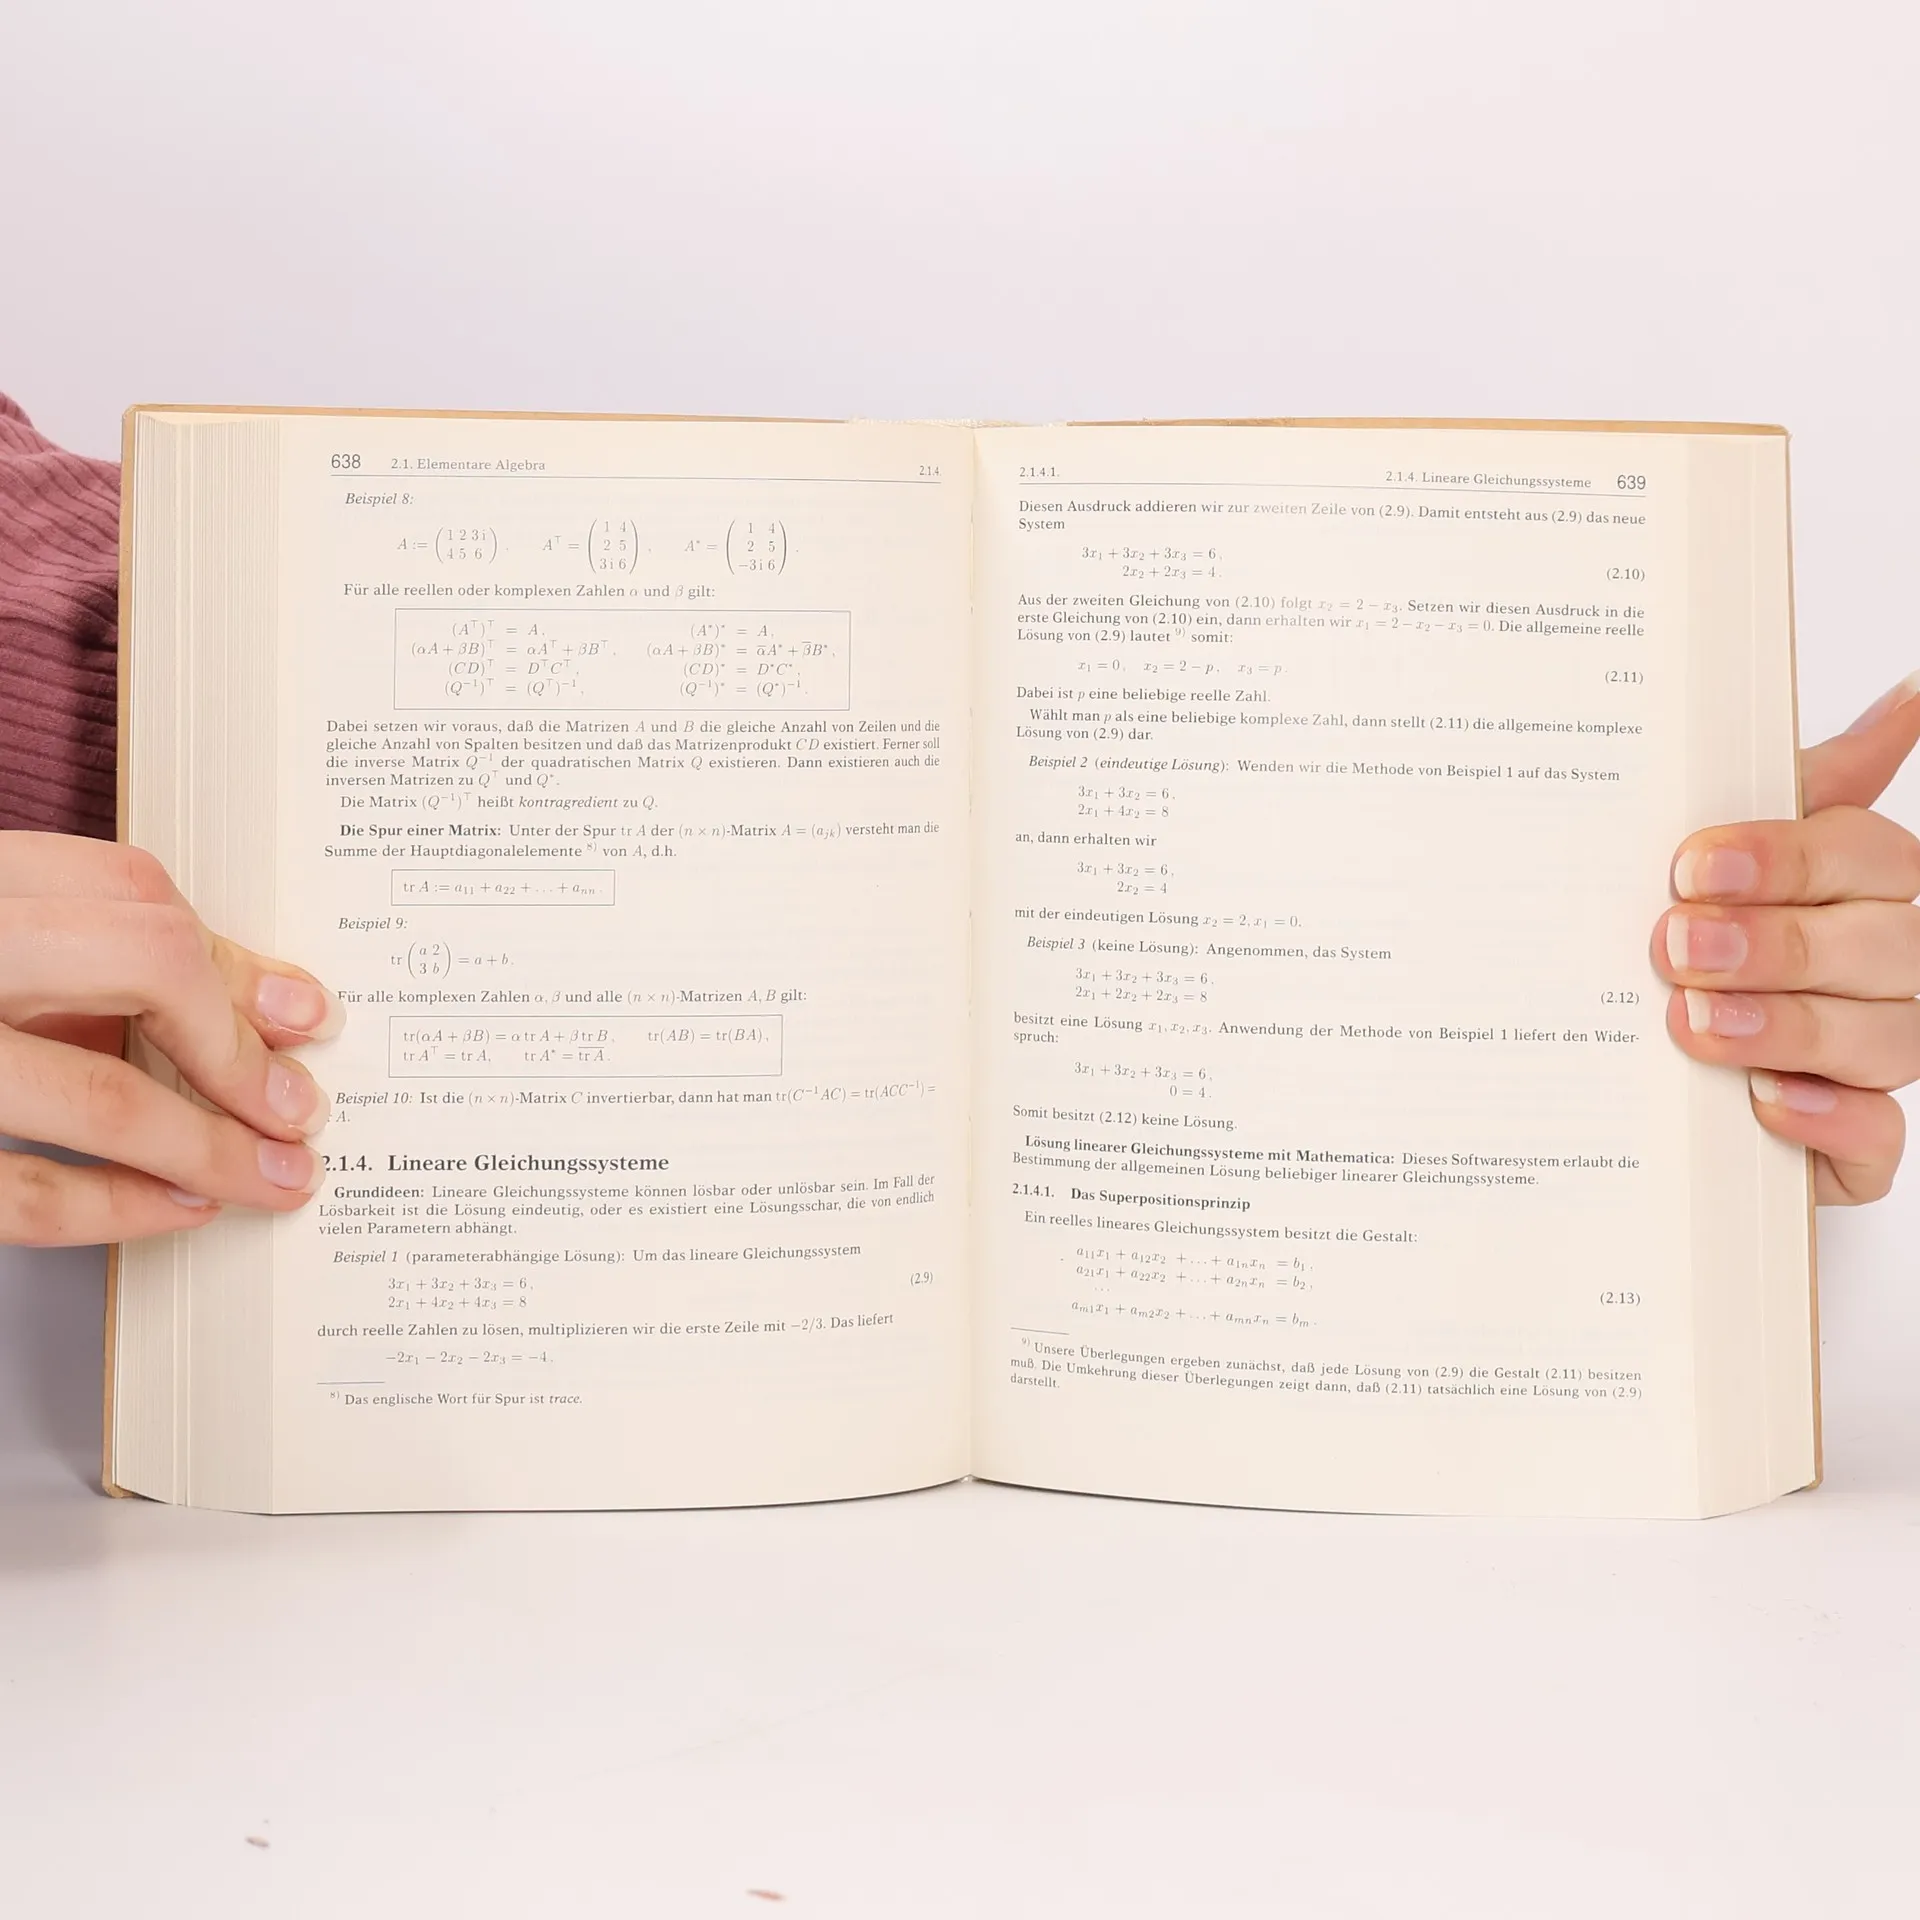 638 2.1. Elementare Algebra 2.1.4.
Beispiel 8:
A := (1 2 3i
4 5 6), A⊤ = (1 4
2 5
3i 6), A* = (1 4
2 5
−3i 6).
Für alle reellen oder komplexen Zahlen α und β gilt:
(A⊤)⊤ = A, (A*)* = A,
(αA + βB)⊤ = αA⊤ + βB⊤, (αA + βB)* = α̅A* + β̅B*,
(CD)⊤ = D⊤C⊤, (CD)* = D*C*,
(Q⁻¹)⊤ = (Q⊤)⁻¹, (Q⁻¹)* = (Q*)⁻¹.
Dabei setzen wir voraus, daß die Matrizen A und B die gleiche Anzahl von Zeilen und die
gleiche Anzahl von Spalten besitzen und daß das Matrizenprodukt CD existiert. Ferner soll
die inverse Matrix Q⁻¹ der quadratischen Matrix Q existieren. Dann existieren auch die
inversen Matrizen zu Q⊤ und Q*.
Die Matrix (Q⁻¹)⊤ heißt kontragredient zu Q.
Die Spur einer Matrix: Unter der Spur tr A der (n × n)-Matrix A = (aⱼₖ) versteht man die
Summe der Hauptdiagonalelemente ⁸⁾ von A, d.h.
tr A := a₁₁ + a₂₂ + ... + aₙₙ.
Beispiel 9:
tr (a 2
3 b) = a + b.
Für alle komplexen Zahlen α, β und alle (n × n)-Matrizen A, B gilt:
tr(αA + βB) = α tr A + β tr B, tr(AB) = tr(BA),
tr A⊤ = tr A, tr A* = t̅r̅ ̅A̅.
Beispiel 10: Ist die (n × n)-Matrix C invertierbar, dann hat man tr(C⁻¹AC) = tr(ACC⁻¹) =
A.
2.1.4. Lineare Gleichungssysteme
Grundideen: Lineare Gleichungssysteme können lösbar oder unlösbar sein. Im Fall der
Lösbarkeit ist die Lösung eindeutig, oder es existiert eine Lösungsschar, die von endlich
vielen Parametern abhängt.
Beispiel 1 (parameterabhängige Lösung): Um das lineare Gleichungssystem
3x₁ + 3x₂ + 3x₃ = 6,
2x₁ + 4x₂ + 4x₃ = 8 (2.9)
durch reelle Zahlen zu lösen, multiplizieren wir die erste Zeile mit −2/3. Das liefert
−2x₁ − 2x₂ − 2x₃ = −4.
⁸⁾ Das englische Wort für Spur ist trace.
2.1.4.1. 2.1.4. Lineare Gleichungssysteme 639
Diesen Ausdruck addieren wir zur zweiten Zeile von (2.9). Damit entsteht aus (2.9) das neue
System
3x₁ + 3x₂ + 3x₃ = 6,
2x₂ + 2x₃ = 4. (2.10)
Aus der zweiten Gleichung von (2.10) folgt x₂ = 2 − x₃. Setzen wir diesen Ausdruck in die
erste Gleichung von (2.10) ein, dann erhalten wir x₁ = 2 − x₂ − x₃ = 0. Die allgemeine reelle
Lösung von (2.9) lautet ⁹⁾ somit:
x₁ = 0, x₂ = 2 − p, x₃ = p. (2.11)
Dabei ist p eine beliebige reelle Zahl.
Wählt man p als eine beliebige komplexe Zahl, dann stellt (2.11) die allgemeine komplexe
Lösung von (2.9) dar.
Beispiel 2 (eindeutige Lösung): Wenden wir die Methode von Beispiel 1 auf das System
3x₁ + 3x₂ = 6,
2x₁ + 4x₂ = 8
an, dann erhalten wir
3x₁ + 3x₂ = 6,
2x₂ = 4
mit der eindeutigen Lösung x₂ = 2, x₁ = 0.
Beispiel 3 (keine Lösung): Angenommen, das System
3x₁ + 3x₂ + 3x₃ = 6,
2x₁ + 2x₂ + 2x₃ = 8 (2.12)
besitzt eine Lösung x₁, x₂, x₃. Anwendung der Methode von Beispiel 1 liefert den Wider-
spruch:
3x₁ + 3x₂ + 3x₃ = 6,
0 = 4.
Somit besitzt (2.12) keine Lösung.
Lösung linearer Gleichungssysteme mit Mathematica: Dieses Softwaresystem erlaubt die
Bestimmung der allgemeinen Lösung beliebiger linearer Gleichungssysteme.
2.1.4.1. Das Superpositionsprinzip
Ein reelles lineares Gleichungssystem besitzt die Gestalt:
a₁₁x₁ + a₁₂x₂ + ... + a₁ₙxₙ = b₁,
a₂₁x₁ + a₂₂x₂ + ... + a₂ₙxₙ = b₂,
... (2.13)
aₘ₁x₁ + aₘ₂x₂ + ... + aₘₙxₙ = bₘ.
⁹⁾ Unsere Überlegungen ergeben zunächst, daß jede Lösung von (2.9) die Gestalt (2.11) besitzen
muß. Die Umkehrung dieser Überlegungen zeigt dann, daß (2.11) tatsächlich eine Lösung von (2.9)
darstellt.